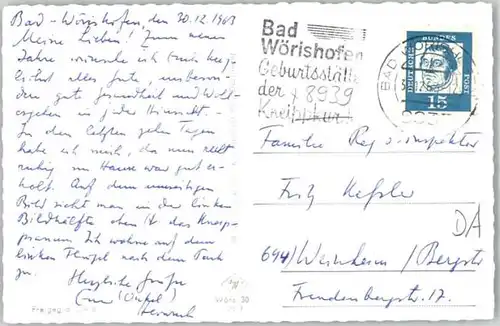 Bad-Wörishofen, den 30.12.1963
Meine Lieben! Zum neuen
Jahre wünsche ich Euch
alles gute
gute Gesundheit und Wohl-
ergehen in jeder Hinsicht.
In den letzten zehn Tagen
habe ich mich, da
ruhig im Hause war gut er-
holt. Auf dem umseitigen
Bild sieht man in der linken
Bildhälfte oben
Ich wohne auf dem
linken Flügel nach dem Park
zu. Herzliche Grüße
Euer (Onkel)
Heinrich
Bad
Wörishofen
Geburtsstätte
der 8939
Kneippkur
BAD
DEUTSCHE
BUNDES
POST
15
Familie Reg.-Inspektor
Fritz Keßler
DA
694/Weinheim/Bergstr
Freudenbergstr. 17.
Wörs 30